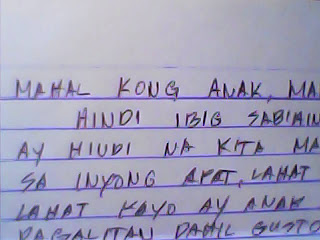 MAHAL KONG ANAK, MA
HINDI IBIG SABIHIN
AY HINDI NA KITA MA
SA INYONG APAT, LAHAT
LAHAT KAYO AY ANAK
PAGALITAN DAHIL GUSTO